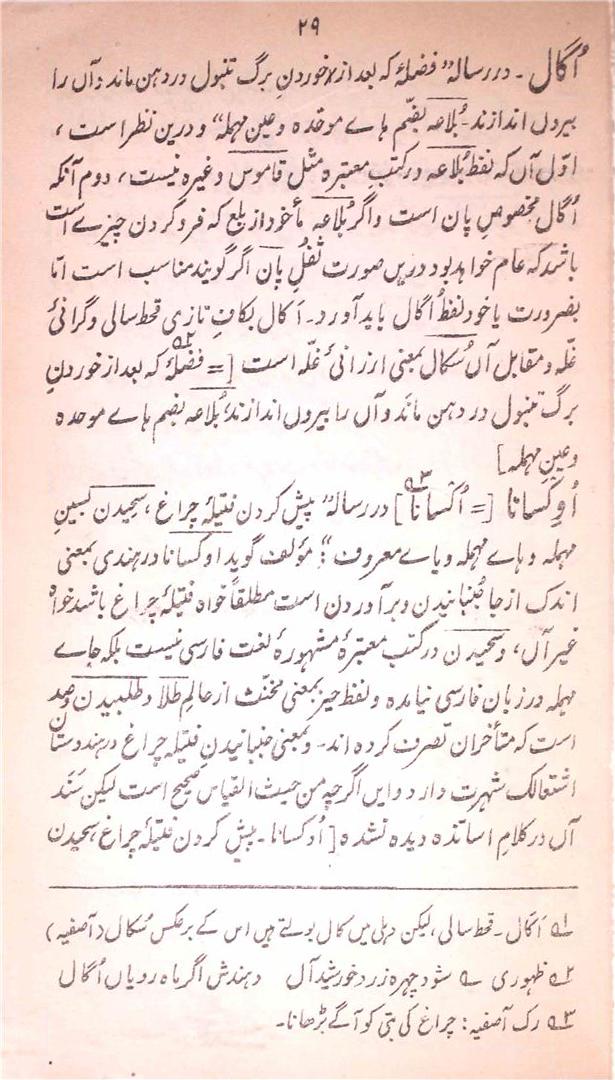 ۲۹
اُگال۔ در رسالہ "فضلۂ کہ بعد از خوردنِ برگ تنبول در دہن ماند و آں را
بیروں اندازند۔ بُلاعہ بضّم باے موحدہ و عین مہملہ" و درین نظر است،
اوّل آں کہ لفظ بُلاعہ در کتبِ معتبرہ مثل قاموس وغیرہ نیست، دوم آنکہ
اُگال مخصوصِ پان است و اگر بُلاعہ مأخوذ از بلع کہ فرو کردن چیزے است
باشد کہ عام خواہد بود دریں صورت ثفلِ پان اگر گویند مناسب است امّا
بضرورت یا خود لفظ اُگال باید آورد۔ اَکال بکافِ تازی قحط سالی و گرانیٔ
غلّہ و مقابل آں سُکال بمعنی ارزانیٔ غلّہ است [= فضلۂ۲ کہ بعد از خوردنِ
برگ تنبول در دہن ماند و آں را بیروں اندازند، بُلاعہ بضم باے موحدہ
و عینِ مہملہ]
اُوکسانا [= اُکسانا۳] در رسالہ "پیش کردن فتیلۂ چراغ، سحیدن بسینِ
مہملہ و ہاے مہملہ و یاے معروف"؛ مؤلف گوید اوکسانا در ہندی بمعنی
اندک از جا جُنبانیدن و برآوردن است مطلقاً خواہ فتیلۂ چراغ باشد خواہ
غیر آں، و سحیدن در کتب معتبرۂ مشہورۂ لغت فارسی نیست بلکہ حاے
مہملہ در زبان فارسی نیامدہ و لفظ حیز بمعنی مخنّث از عالمِ طلا و طلبیدن و صد
است کہ متأخران تصرف کردہ اند۔ و بمعنی جنبانیدن فتیلۂ چراغ در ہندوستان
اشتعالک شہرت دارد و ایں اگرچہ من حیث القیاس صحیح است لیکن سَنَد
آں در کلامِ اساتذہ دیدہ نشدہ [اُوکسانا۔ پیش کردن فتیلۂ چراغ، سحیدن
۱؎ اَکال۔ قحط سالی، لیکن دہلی میں کال بولتے ہیں اس کے برعکس سُکال (آصفیہ)
۲؎ ظہوری ؎ شود چہرہ زرد خورشید آل دہندش اگر ماہ رویاں اُگال
۳؎ رک آصفیہ: چراغ کی بتی کو آگے بڑھانا۔